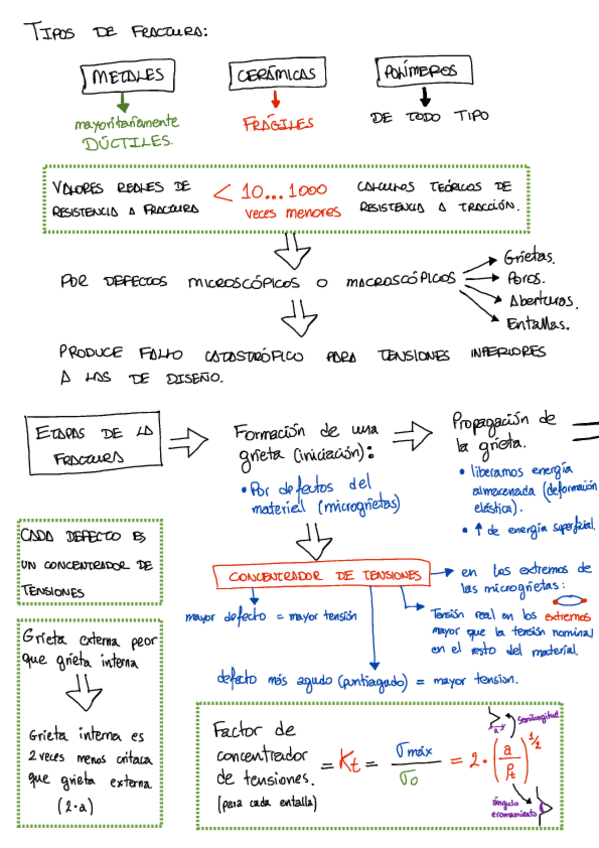 TIPOS DE FRACTURA:
METALES
CERÁMICAS
POLÍMEROS
mayoritariamente
DÚCTILES.
FRÁGILES
DE TODO TIPO
VALORES REALES DE
RESISTENCIA A FRACTURA
< 10...1000
veces menores
CÁLCULOS TEÓRICOS DE
RESISTENCIA A TRACCIÓN.
POR DEFECTOS MICROSCÓPICOS O MACROSCÓPICOS
Grietas.
Poros.
Aberturas.
Entallas.
PRODUCE FALLO CATASTRÓFICO PARA TENSIONES INFERIORES
A LAS DE DISEÑO.
ETAPAS DE LA
FRACTURA
Formación de una
grieta (iniciación):
• Por defectos del
material (microgrietas)
Propagación de
la grieta.
• liberamos energía
almacenada (deformación
elástica).
• ↑ de energía superficial.
CADA DEFECTO ES
UN CONCENTRADOR DE
TENSIONES
CONCENTRADOR DE TENSIONES
en los extremos de
las microgrietas:
mayor defecto = mayor tensión
Tensión real en los extremos
mayor que la tensión nominal
en el resto del material.
defecto más agudo (puntiagudo) = mayor tension.
Grieta externa peor
que grieta interna
Grieta interna es
2 veces menos crítica
que grieta externa.
(2·a)
Factor de
concentrador
de tensiones.
(para cada entalla)
= Kt = σmáx / σ0 = 2·(a / ρt)^1/2
Semilongitud
ángulo